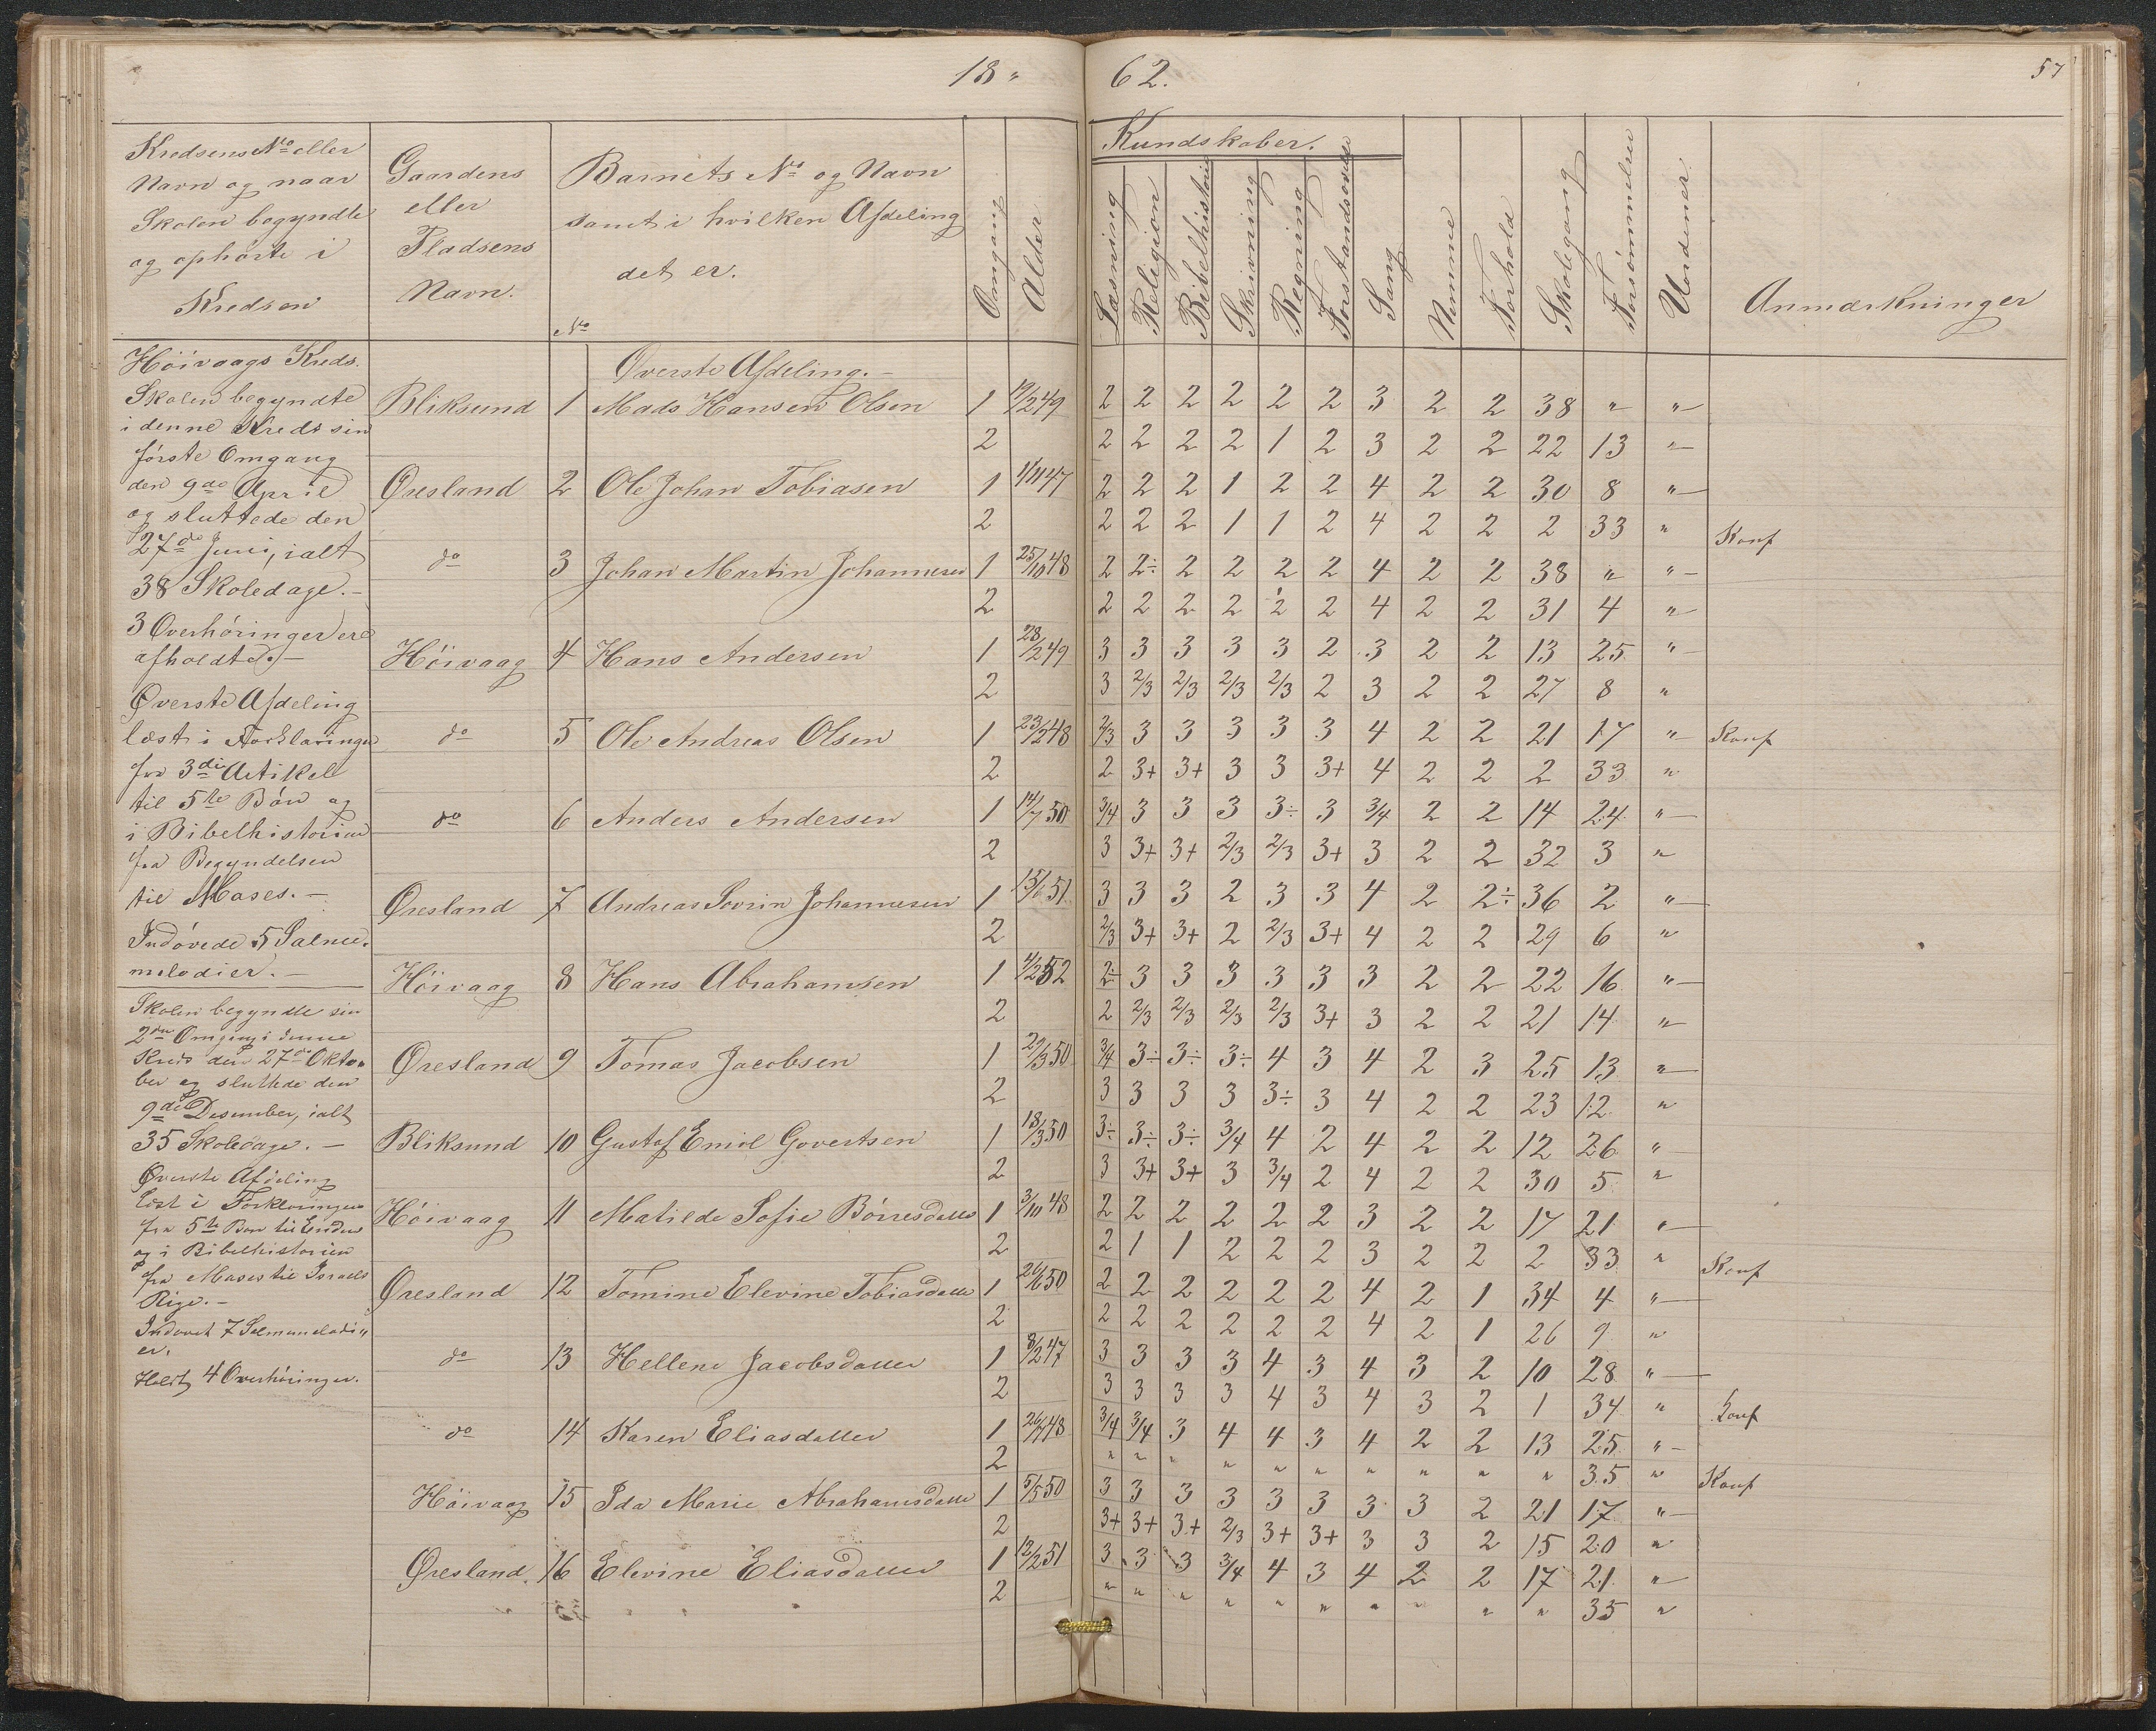 18 " 62.
57
Kredsens No eller
Navn og naar
Skolen begyndte
og ophørte i
Kredsen
Gaardens
eller
Pladsens
Navn.
Barnets No og Navn
samt i hvilken Afdeling
det er.
No
Omgang
Alder
Kundskaber.
Læsning
Religion
Bibelhistorie
Skrivning
Regning
Forstandsøvelse
Sang
Nemme
Forhold
Skolegang
Forsømmelser
Uordener
Anmærkninger
Höivaags Kreds.
Skolen begyndte
i denne Kreds sin
förste Omgang
den 9de April
og sluttede den
27de Juni, ialt
38 Skoledage.-
3 Overhöringer ere
afholdte.-
Øverste Afdeling
læst i Forklaringen
fra 3die Artikel
til 5te Bön og
i Bibelhistorien
fra Begyndelsen
til Moses.-
Indövede 5 Salme-
melodier.-
Skolen begyndte sin
2den Omgang i denne
Kreds den 27de Okto-
ber og sluttede den
9de Desember, ialt
35 Skoledage.-
Øverste Afdeling
læst i Forklaringen
fra 5te Bön til Enden
og i Bibelhistorien
fra Moses til Israels
Rige.-
Indövet 7 Salmemelodi"
er.
Holdt 4 Overhöringer.
Øverste Afdeling.-
Bliksund 1 Mads Hansen Olsen 1 19/2 49 2 2 2 2 2 2 3 2 2 38 " "
2 2 2 2 2 1 2 3 2 2 22 13 "
Øresland 2 Ole Johan Tobiasen 1 1/11 47 2 2 2 1 2 2 4 2 2 30 8 "
2 2 2 2 1 1 2 4 2 2 2 33 " Konf
do 3 Johan Martin Johannesen 1 25/10 48 2 2÷ 2 2 2 2 4 2 2 38 " "
2 2 2 2 2 2 2 4 2 2 31 4 "
Höivaag 4 Hans Andersen 1 28/2 49 3 3 3 3 3 2 3 2 2 13 25 "
2 3 2/3 2/3 2/3 2/3 2 3 2 2 27 8 "
do 5 Ole Andreas Olsen 1 23/2 48 2/3 3 3 3 3 3 4 2 2 21 17 " Konf
2 2 3+ 3+ 3 3 3+ 4 2 2 2 33 "
do 6 Anders Andersen 1 14/7 50 3/4 3 3 3 3÷ 3 3/4 2 2 14 24 "
2 3 3+ 3+ 2/3 2/3 3+ 3 2 2 32 3 "
Øresland 7 Andreas Sovrin Johannesen 1 15/6 51 3 3 3 2 3 3 4 2 2÷ 36 2 "
2 2/3 3+ 3+ 2 2/3 3+ 4 2 2 29 6 "
Höivaag 8 Hans Abrahamsen 1 4/2 52 2÷ 3 3 3 3 3 3 2 2 22 16 "
2 2 2/3 2/3 2/3 2/3 3+ 3 2 2 21 14 "
Øresland 9 Tomas Jacobsen 1 29/3 50 3/4 3÷ 3÷ 3÷ 4 3 4 2 3 25 13 "
2 3 3 3 3 3÷ 3 4 2 2 23 12 "
Bliksund 10 Gustaf Emil Govertsen 1 18/3 50 3÷ 3÷ 3÷ 3/4 4 2 4 2 2 12 26 "
2 3 3+ 3+ 3 3/4 2 4 2 2 30 5 "
Höivaag 11 Matilde Sofie Börresdatter 1 3/10 48 2 2 2 2 2 2 3 2 2 17 21 "
2 2 1 1 2 2 2 3 2 2 2 33 " Konf
Øresland 12 Tomine Elevine Tobiasdatter 1 24/6 50 2 2 2 2 2 2 4 2 1 34 4 "
2 2 2 2 2 2 2 4 2 1 26 9 "
do 13 Hellene Jacobsdatter 1 8/2 47 3 3 3 3 4 3 4 3 2 10 28 "
2 3 3 3 3 4 3 4 3 2 1 34 " Konf
do 14 Karen Eliasdatter 1 26/7 48 3/4 3/4 3 4 4 3 4 2 2 13 25 "
2 " " " " " " " " " " 35 " Konf
Höivaag 15 Ida Marie Abrahamsdatter 1 5/5 50 3 3 3 3 3 3 3 3 2 21 17 "
2 3+ 3+ 3+ 2/3 3+ 3+ 3 3 2 15 20 "
Øresland. 16 Elevine Eliasdatter 1 12/2 51 3 3 3 3/4 4 3 4 2 2 17 21 "
2 " " " " " " " " " " 35 "